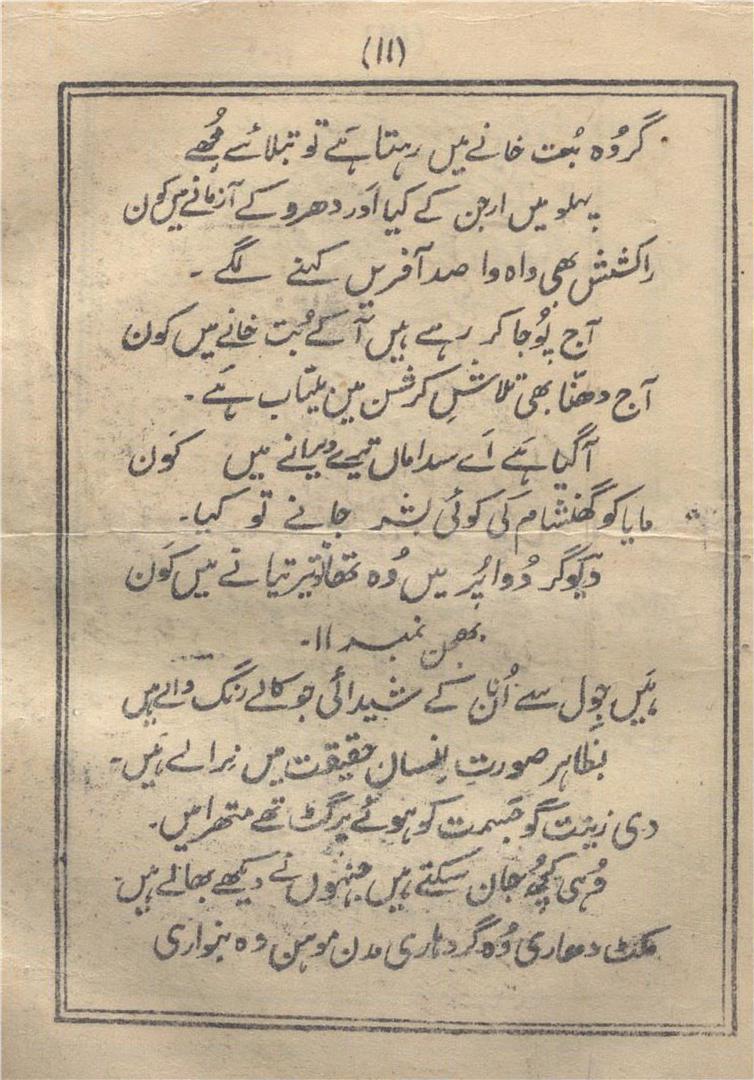 (۱۱)
گر وُہ بُت خانے میں رہتا ہَے تو بتلائے مُجھے
پہلو میں ارجن کے کیا اَور دھرو کے آزمانے میں کون
راکشش بھی واہ وا صد آفریں کہنے لگے ۔
آج پُوجا کر رہے ہیں آ کے بُت خانے میں کون
آج دھنّا بھی تلاشِ کرشن میں بیتاب ہَے ۔
آگیا ہَے اَے سداماں تیرے ویرانے میں کَون
مایا کو گھنشام کی کوئی بشر جانے تو کیا ۔
گر دُواپُر میں وُہ تھا تو تیرتیا نے میں کَون
بھجن نمبر ۱۱ ۔
ہَیں دِل سے اُن کے شیدائی جو کالے رنگ والے ہیں
بظاہر صورتِ اِنسان حقیقت میں نِرالے ہَیں ۔
دی زینت گو جسمت کو ہوئے پرگٹ تھے متھرا میں ۔
وُہی کُچھ جان سکتے ہیں جِنہوں نے دیکھے بھالے ہیں ۔
مکٹ دھاری وُہ گردہاری مدن موہن وہ بنواری